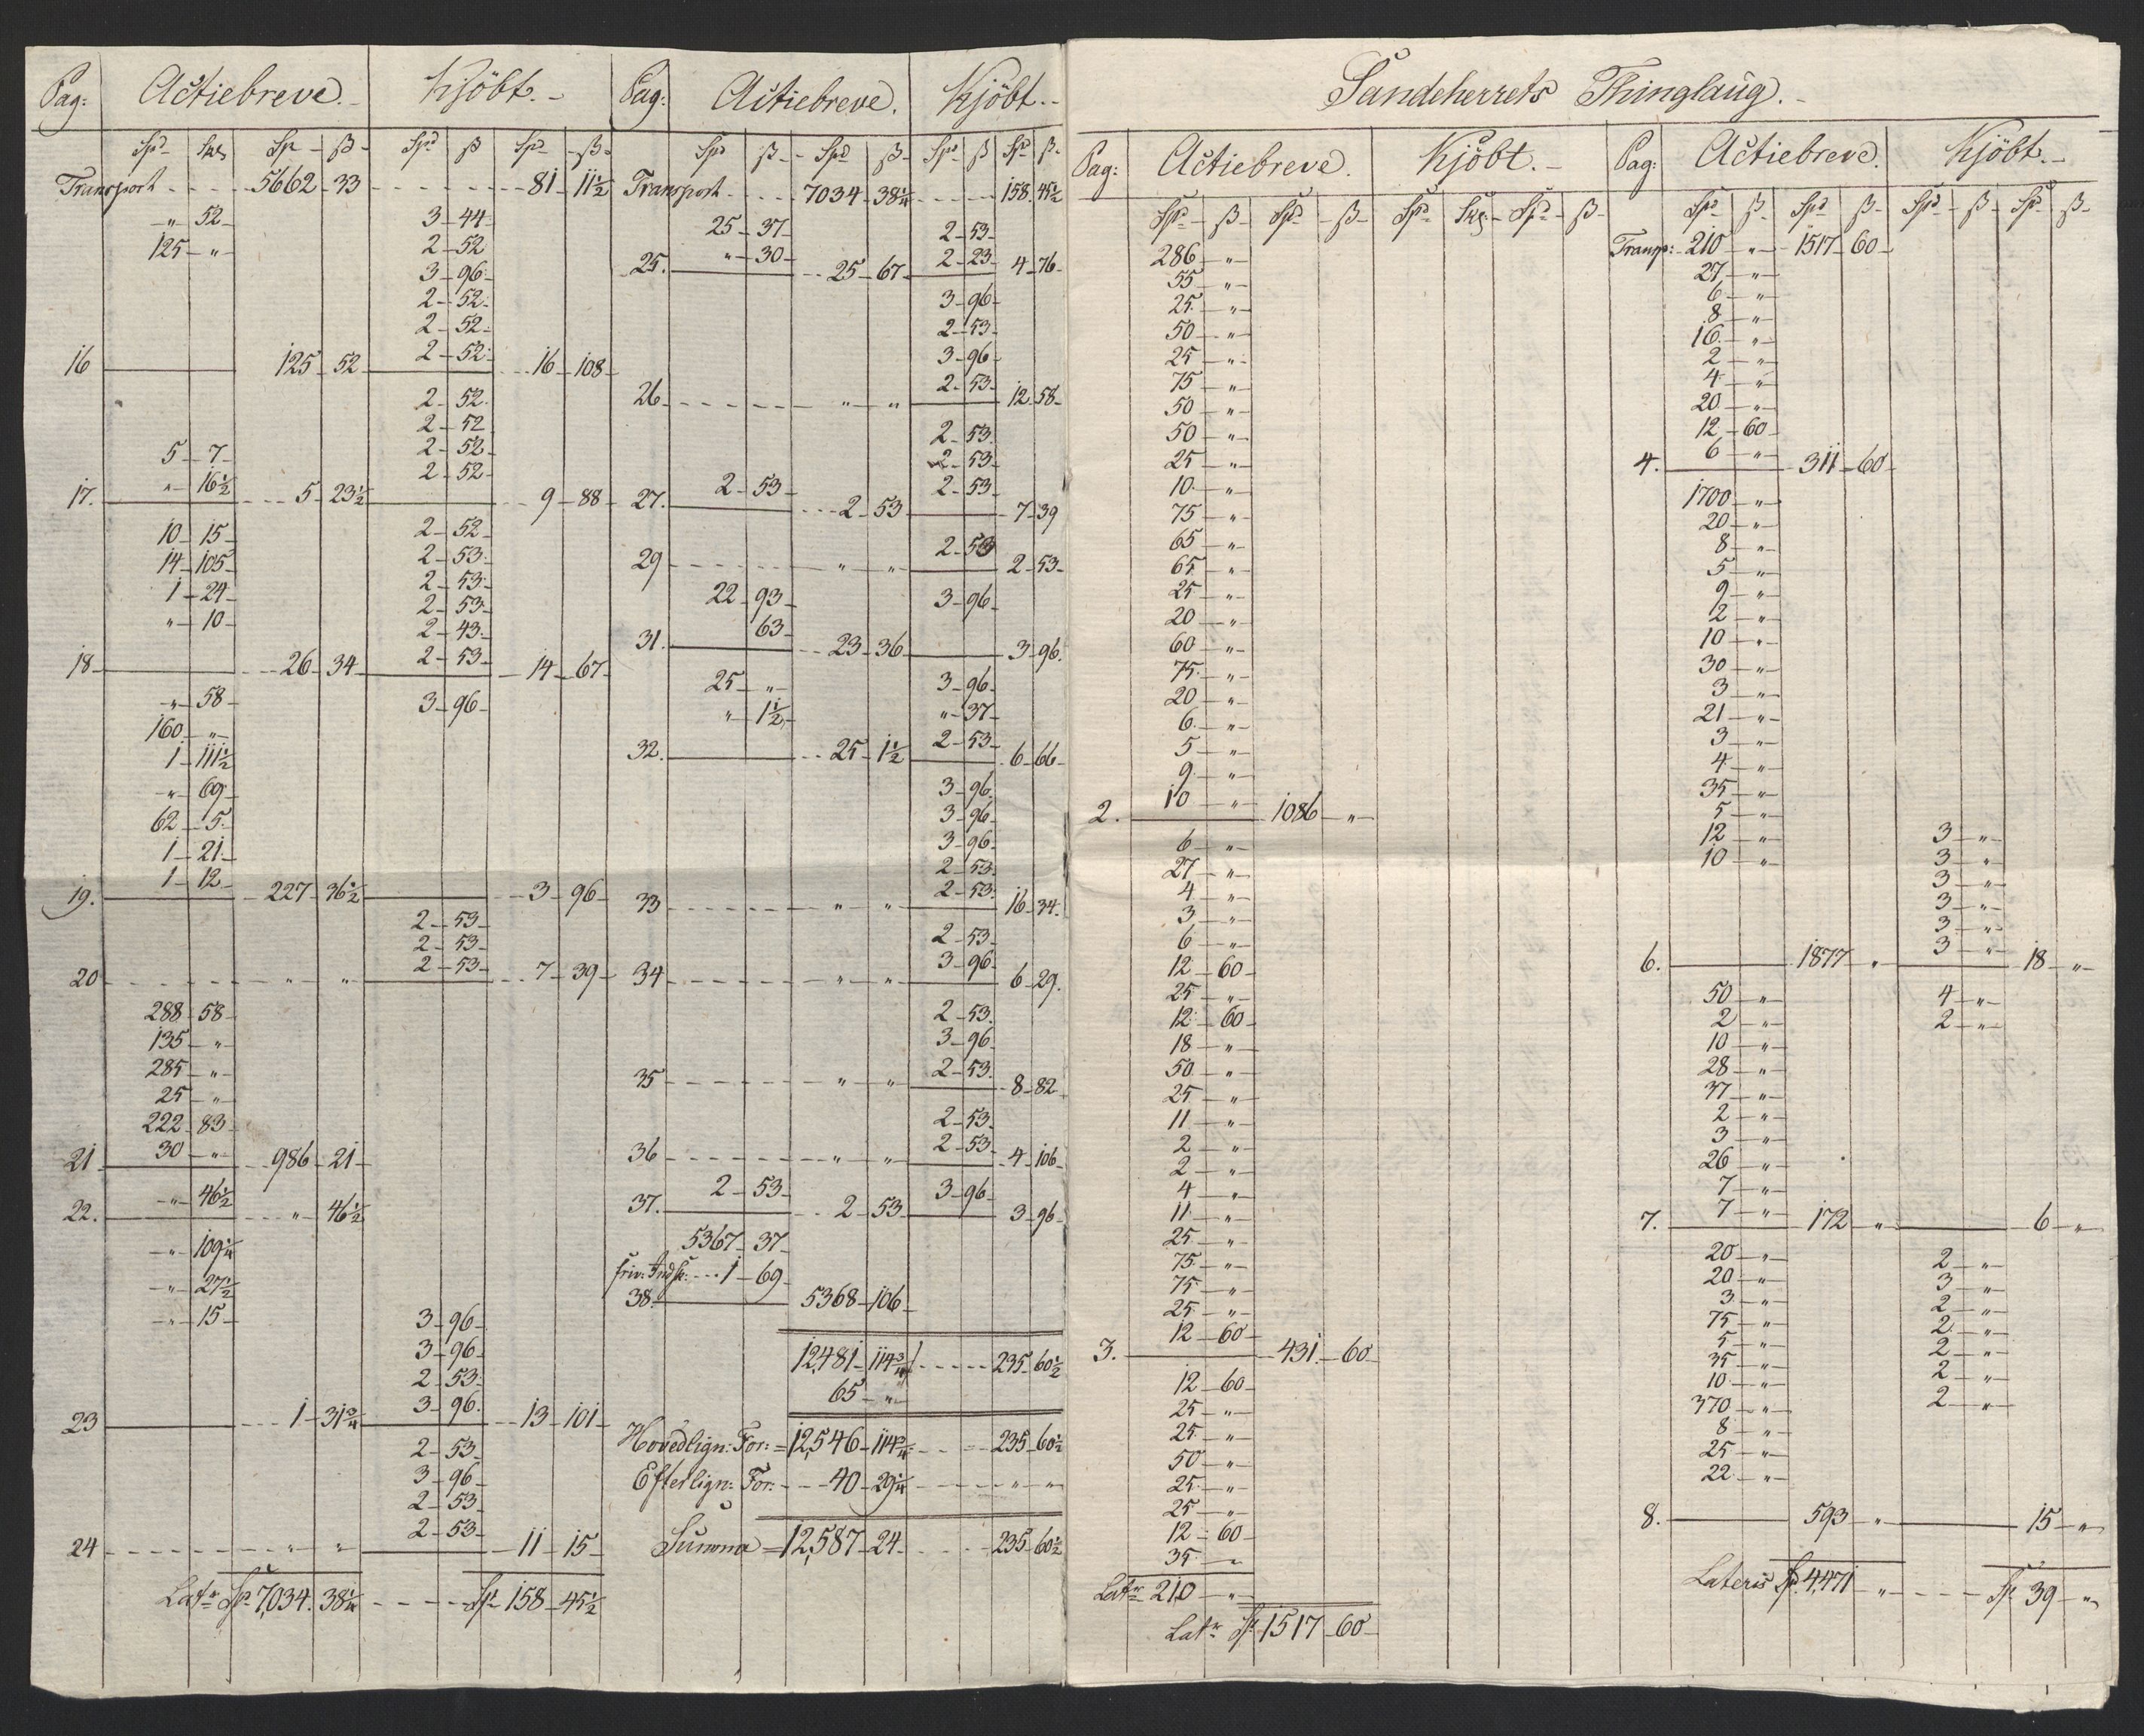 Pag: Actiebreve. Kjöbt.
Spd Skr Sp ß Spd ß Spd ß
Transport 5662 33 81 11½
" 52 3 44
125 " 2 52
3 96
2 52
2 52
16 125 52 2 52 16 108
2 52
2 52
5 7 2 52
" 16½ 2 52
17. 5 23½ 9 88
10 15 2 52
14 105 2 53
1 24 2 53
" 10 2 53
2 43
18 26 34 2 53 14 67
" 58 3 96
160 "
1 111½
" 69
62 5
1 21
1 12
19. 227 36½ 3 96
2 53
2 53
20 " " 2 53 7 39
288 58
135 "
285 "
25 "
222 83
30 "
21 986 21
" 46½
22. " 46½
" 109¼
" 27½
" 15 3 96
3 96
2 53
23 1 31¾ 3 96 13 101
2 53
3 96
2 53
24 " " 2 53 11 15
Latr Sp 7,034 38¼ Sp 158 45½
Pag: Actiebreve. Kjöbt.
Spd ß Spd ß Spd ß Spd ß
Transport 7034 38¼ 158 45½
25 37 2 53
" 30 2 23
25. 25 67 4 76
3 96
2 53
3 96
26 " " 2 53 12 58
2 53
2 53
2 53 2 53
27. 2 53 7 39
29 " " 2 53 2 53
22 93 3 96
63
31. 23 36 3 96
25 " 3 96
" 1½ " 37
32. 25 1½ 2 53 6 66
3 96
3 96
3 96
2 53
33 " " 2 53 16 34
2 53
34 " " 3 96 6 29
2 53
3 96
35 " " 2 53 8 82
2 53
36 " " 2 53 4 106
2 53 3 96
37. 2 53 3 96
5367 37
1 69
38. 5368 106
12,481 114¾ 235 60½
65 "
Hovedlign: For: = 12,546 114¾ 235 60½
Efterlign: For: 40 29¼ " "
Summa = 12,587 24 235 60½
Sandeherrets Thinglaug.
Pag: Actiebreve. Kjöbt.
Spd ß Spd ß Spd Skr Spd ß
286 "
55 "
25 "
50 "
25 "
75 "
50 "
50 "
25 "
10 "
75 "
65 "
65 "
25 "
20 "
60 "
75 "
20 "
6 "
5 "
9 "
10 "
2. 1086 "
6 "
27 "
4 "
3 "
6 "
12 60
25 "
12 60
18 "
50 "
25 "
11 "
2 "
2 "
4 "
11 "
25 "
75 "
75 "
25 "
12 60
3. 431 60
12 60
25 "
25 "
50 "
25 "
25 "
12 60
35 "
Latr 210 "
Latr Sp 1517 60
Pag: Actiebreve. Kjöbt.
Spd ß Spd ß Spd ß Sp ß
Transp: 210 " 1517 60
27 "
6 "
8 "
16 "
2 "
4 "
20 "
12 60
6 "
4. 311 60
1700 "
20 "
8 "
5 "
9 "
2 "
10 "
30 "
3 "
21 "
3 "
4 "
35 "
5 "
12 " 3 "
10 " 3 "
3 "
3 "
3 "
3 "
6. 1877 " 18 "
50 " 4 "
2 " 2 "
10 "
28 "
37 "
2 "
3 "
26 "
7 "
7 "
7. 172 " 6 "
20 " 2 "
20 " 3 "
3 " 2 "
75 " 2 "
5 " 2 "
35 " 2 "
10 " 2 "
370 "
8 "
25 "
22 "
8. 593 " 15 "
Lateris Sp 4,471 " Sp 39 "